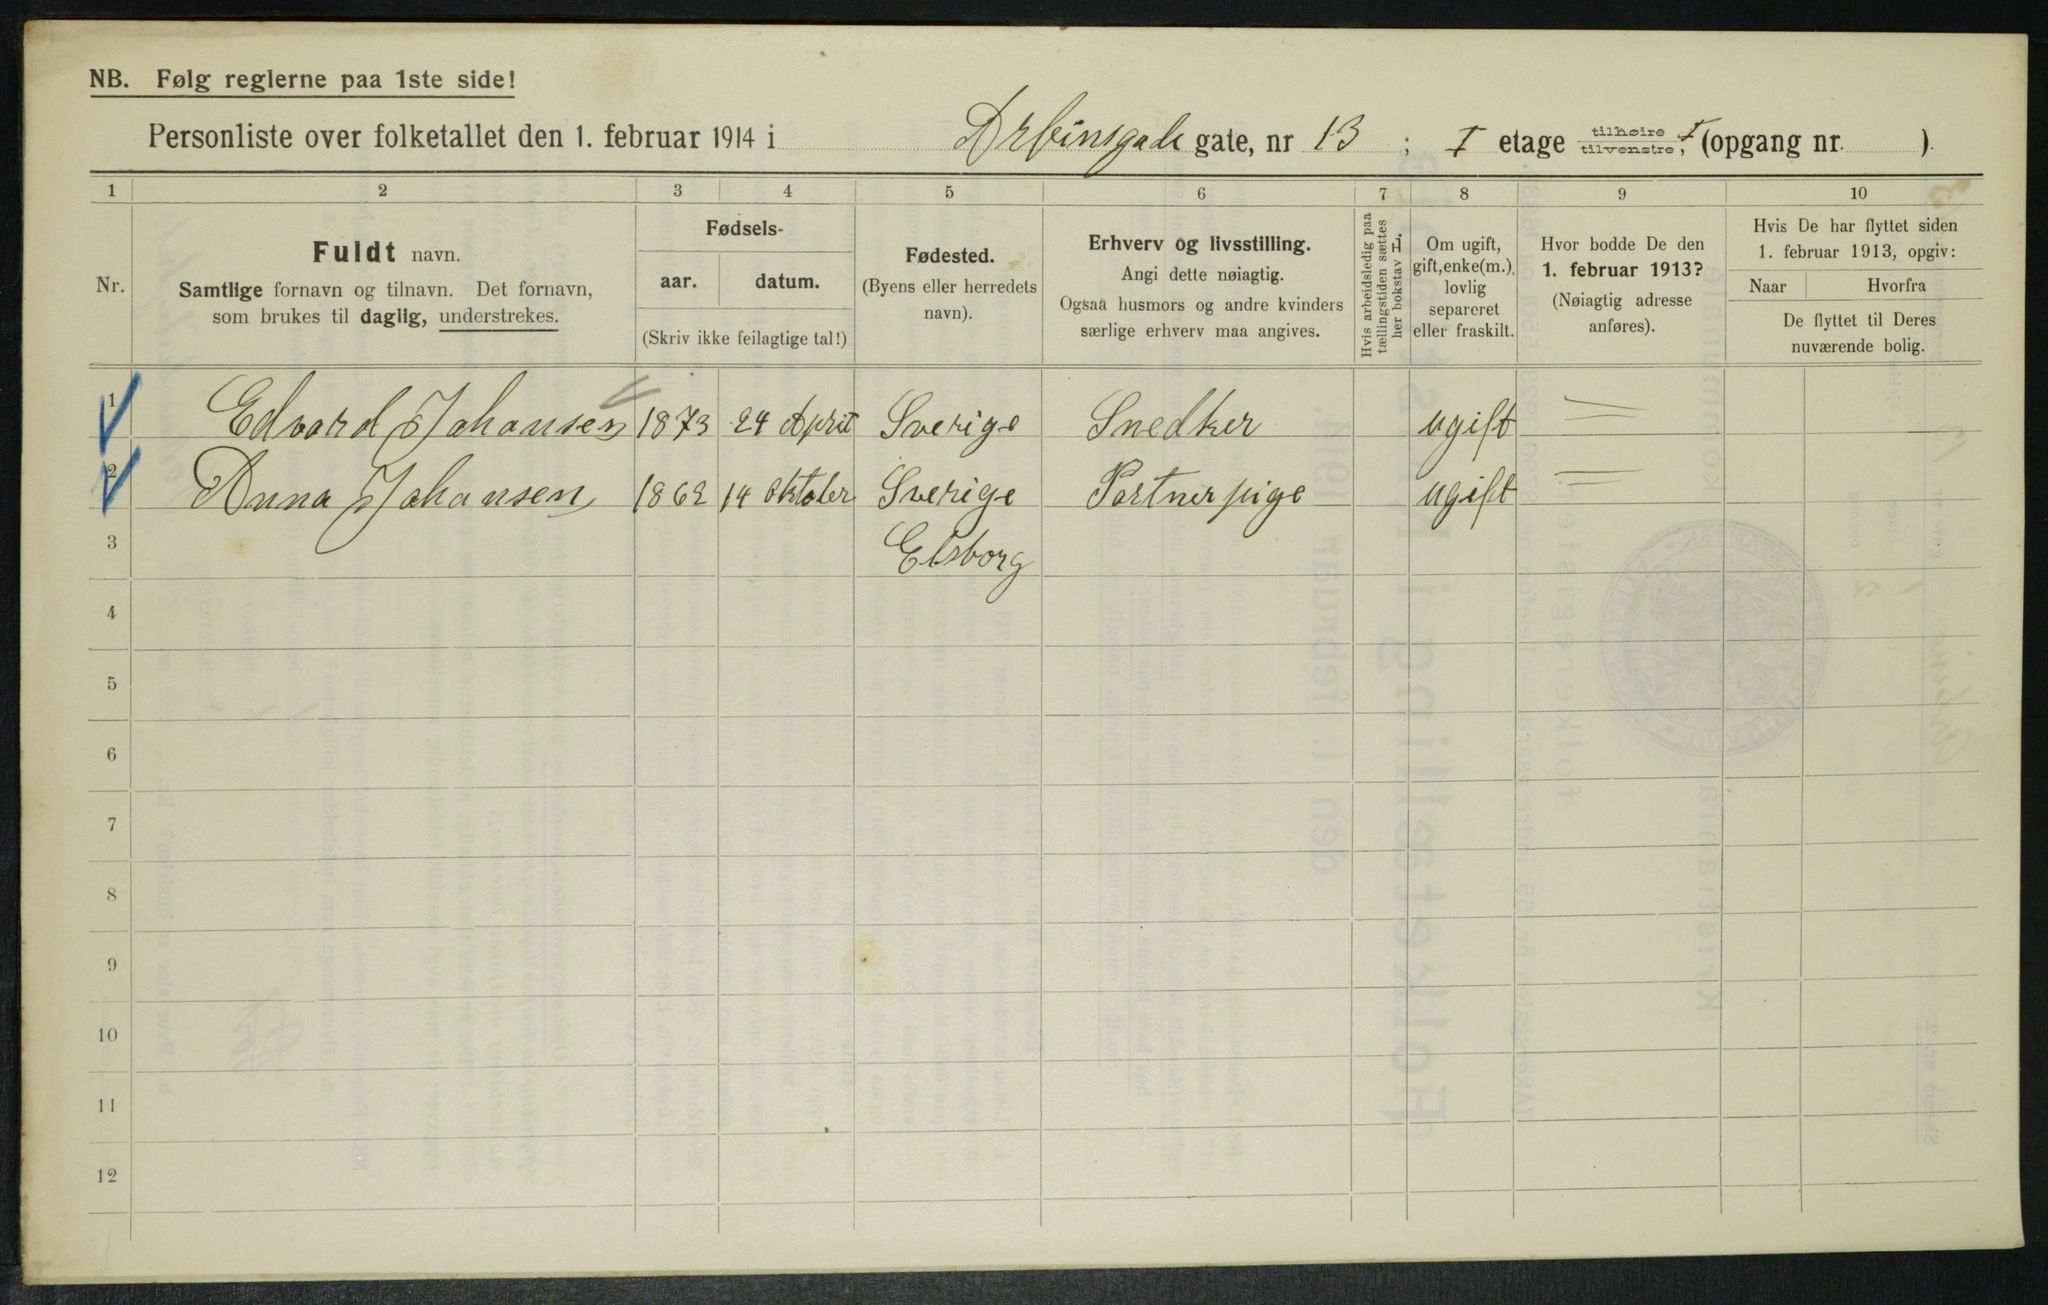 NB. Følg reglerne paa 1ste side!
Personliste over folketallet den 1. februar 1914 i Arbinsgade gate, nr 13 ; I etage tilhøire tilvenstre, I (opgang nr. ).
1 2 3 4 5 6 7 8 9 10
Nr.
Fuldt navn.
Samtlige fornavn og tilnavn. Det fornavn,
som brukes til daglig, understrekes.
Fødsels-
aar. datum.
(Skriv ikke feilagtige tal!)
Fødested.
(Byens eller herredets
navn).
Erhverv og livsstilling.
Angi dette nøiagtig.
Ogsaa husmors og andre kvinders
særlige erhverv maa angives.
Hvis arbeidsledig paa
tællingstiden sættes
her bokstav L.
Om ugift,
gift, enke(m.),
lovlig
separeret
eller fraskilt.
Hvor bodde De den
1. februar 1913?
(Nøiagtig adresse
anføres).
Hvis De har flyttet siden
1. februar 1913, opgiv:
Naar Hvorfra
De flyttet til Deres
nuværende bolig.
1 Edvard Johansen 1873 24 April Sverige Snedker ugift =
2 Anna Johansen 1862 14 Oktober Sverige Portnerpige ugift =
3 Elsborg
4
5
6
7
8
9
10
11
12